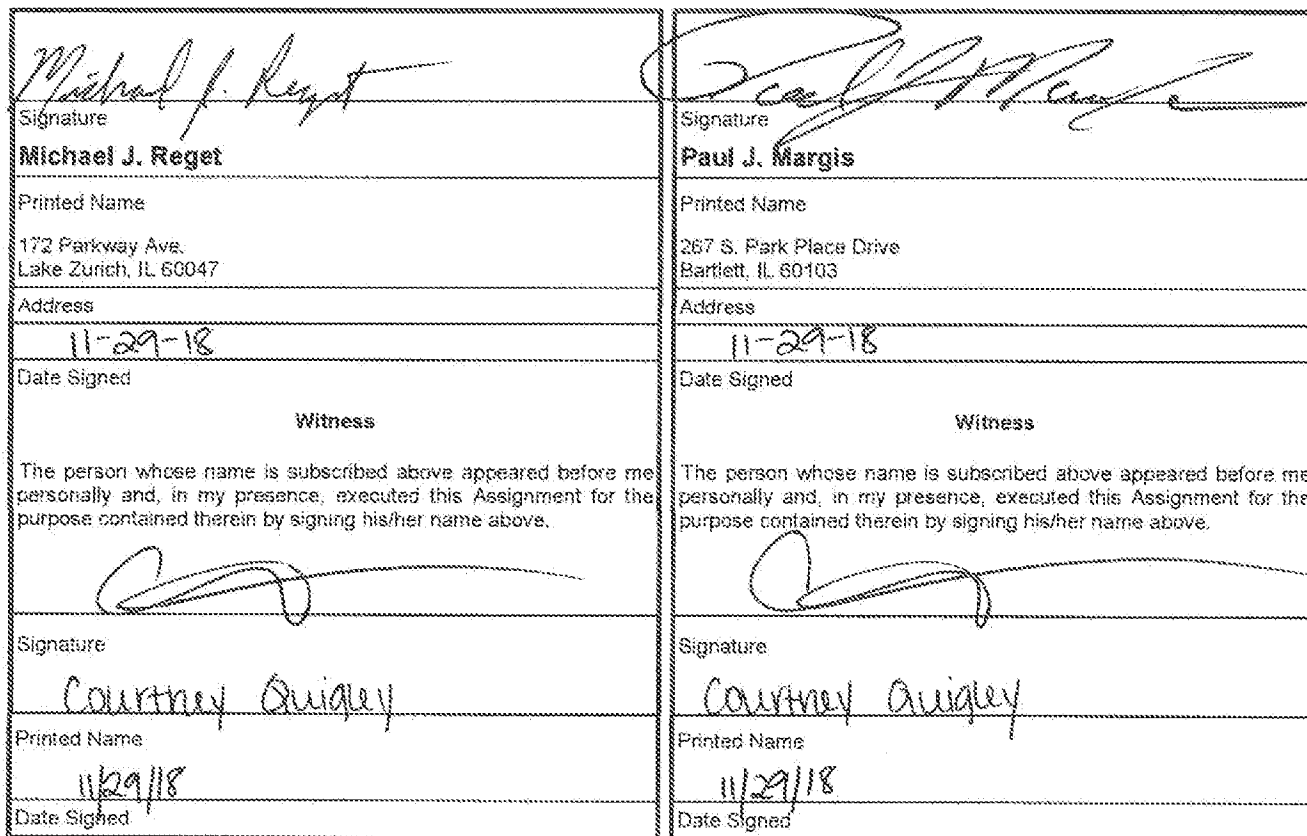 Michael J. Reget
Signature
Michael J. Reget
Printed Name
172 Parkway Ave.
Lake Zurich, IL 60047
Address
11-29-18
Date Signed
Witness
The person whose name is subscribed above appeared before me
personally and, in my presence, executed this Assignment for the
purpose contained therein by signing his/her name above.
Signature
Courtney Quigley
Printed Name
11/29/18
Date Signed
Paul J Margis
Signature
Paul J. Margis
Printed Name
267 S. Park Place Drive
Bartlett, IL 60103
Address
11-29-18
Date Signed
Witness
The person whose name is subscribed above appeared before me
personally and, in my presence, executed this Assignment for the
purpose contained therein by signing his/her name above.
Signature
Courtney Quigley
Printed Name
11/29/18
Date Signed